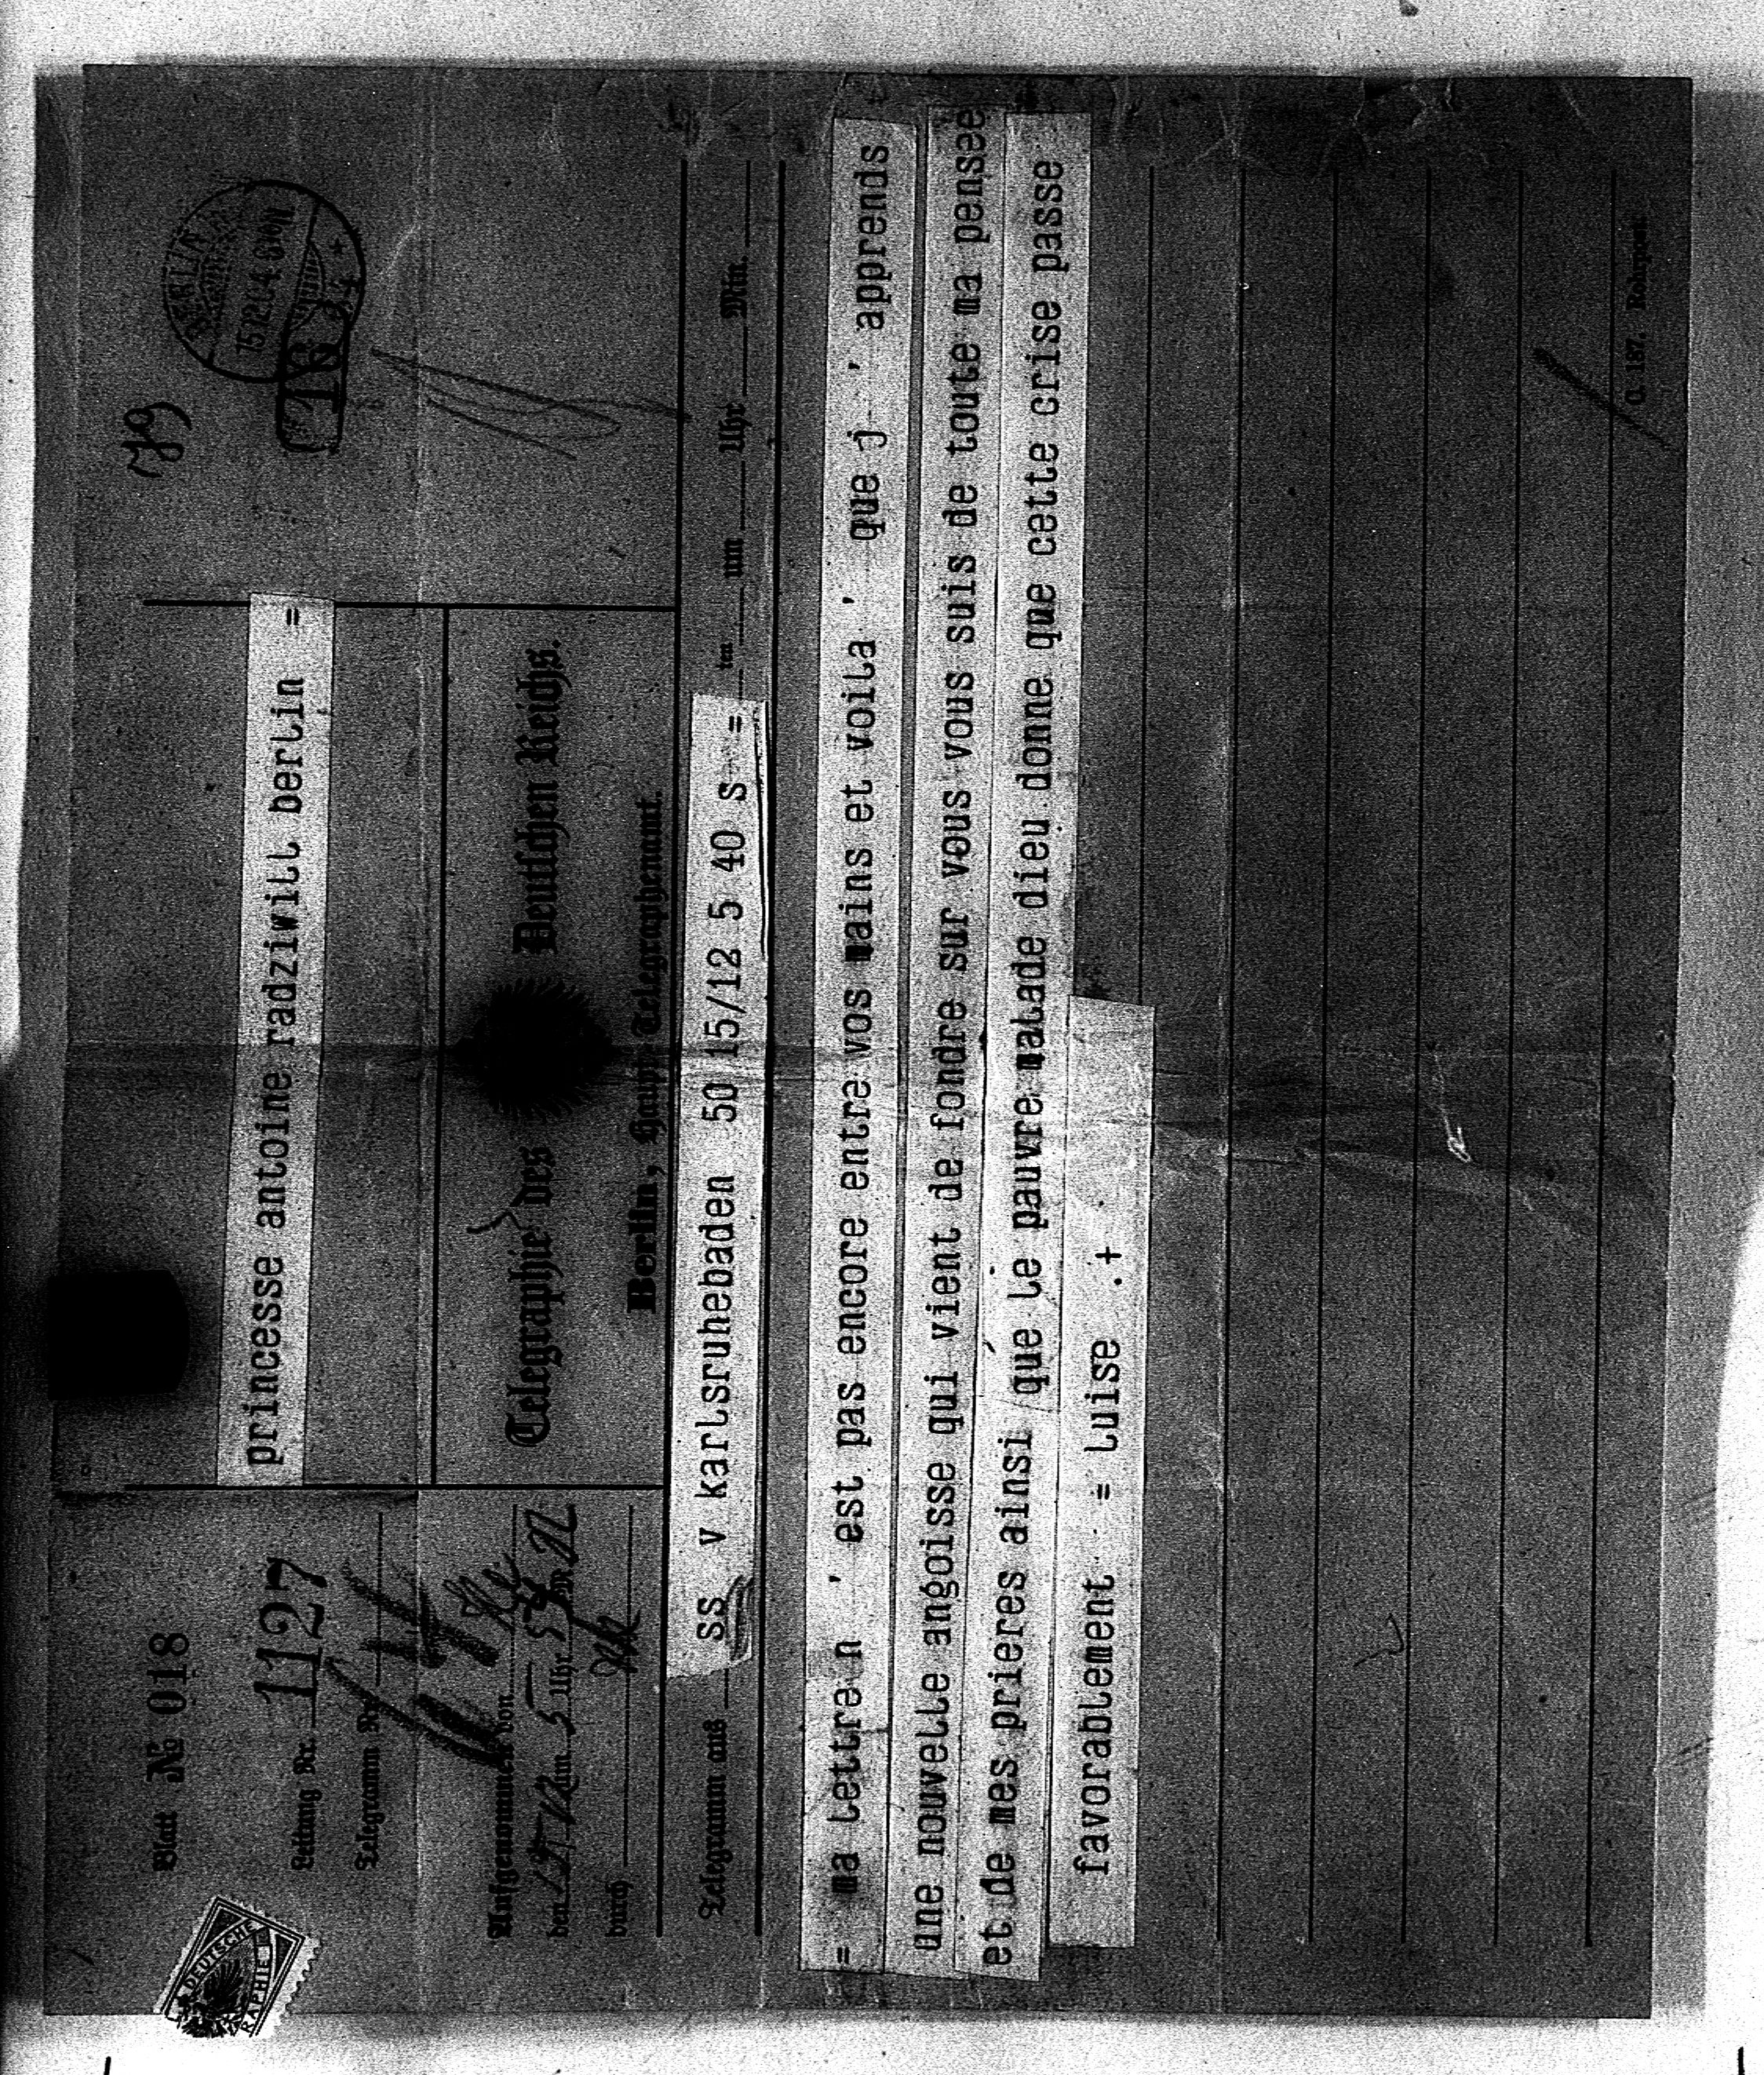 Blatt № 018
Leitung Nr. 1127
Telegramm Nr.
Aufgenommen von
den 15/12 um 5 Uhr
durch
princesse antoine radziwill berlin =
Telegraphie des Deutschen Reichs.
Berlin, Haupt-Telegraphenamt.
79
BERLIN
15.12.04. 6
DEUTSCHE
Telegramm aus ss v karlsruhebaden 50 15/12 5 40 s = um Uhr Min.
= ma lettre n ' est pas encore entre vos mains et voila ' que j ' apprends
une nouvelle angoisse qui vient de fondre sur vous vous suis de toute ma pensee
et de mes prieres ainsi que le pauvre malade dieu donne que cette crise passe
favorablement = luise .+
C. 187. Rohrpost